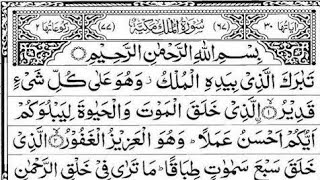 اٰیَاتُهَا ٣٠ (٦٧) سُوْرَةُ الْمُلْكِ مَكِّیَّةٌ (٧٧) رُكُوْعَاتُهَا ٢
بِسْمِ اللّٰهِ الرَّحْمٰنِ الرَّحِیْمِ
تَبٰرَكَ الَّذِیْ بِیَدِهِ الْمُلْكُ ز وَهُوَ عَلٰى كُلِّ شَیْءٍ
قَدِیْرُ ۙ﴿١﴾ الَّذِیْ خَلَقَ الْمَوْتَ وَالْحَیٰوةَ لِیَبْلُوَكُمْ
اَیُّكُمْ اَحْسَنُ عَمَلًا ؕ وَهُوَ الْعَزِیْزُ الْغَفُوْرُ ۙ﴿٢﴾ الَّذِیْ
خَلَقَ سَبْعَ سَمٰوٰتٍ طِبَاقًا ؕ مَا تَرٰى فِیْ خَلْقِ الرَّحْمٰنِ